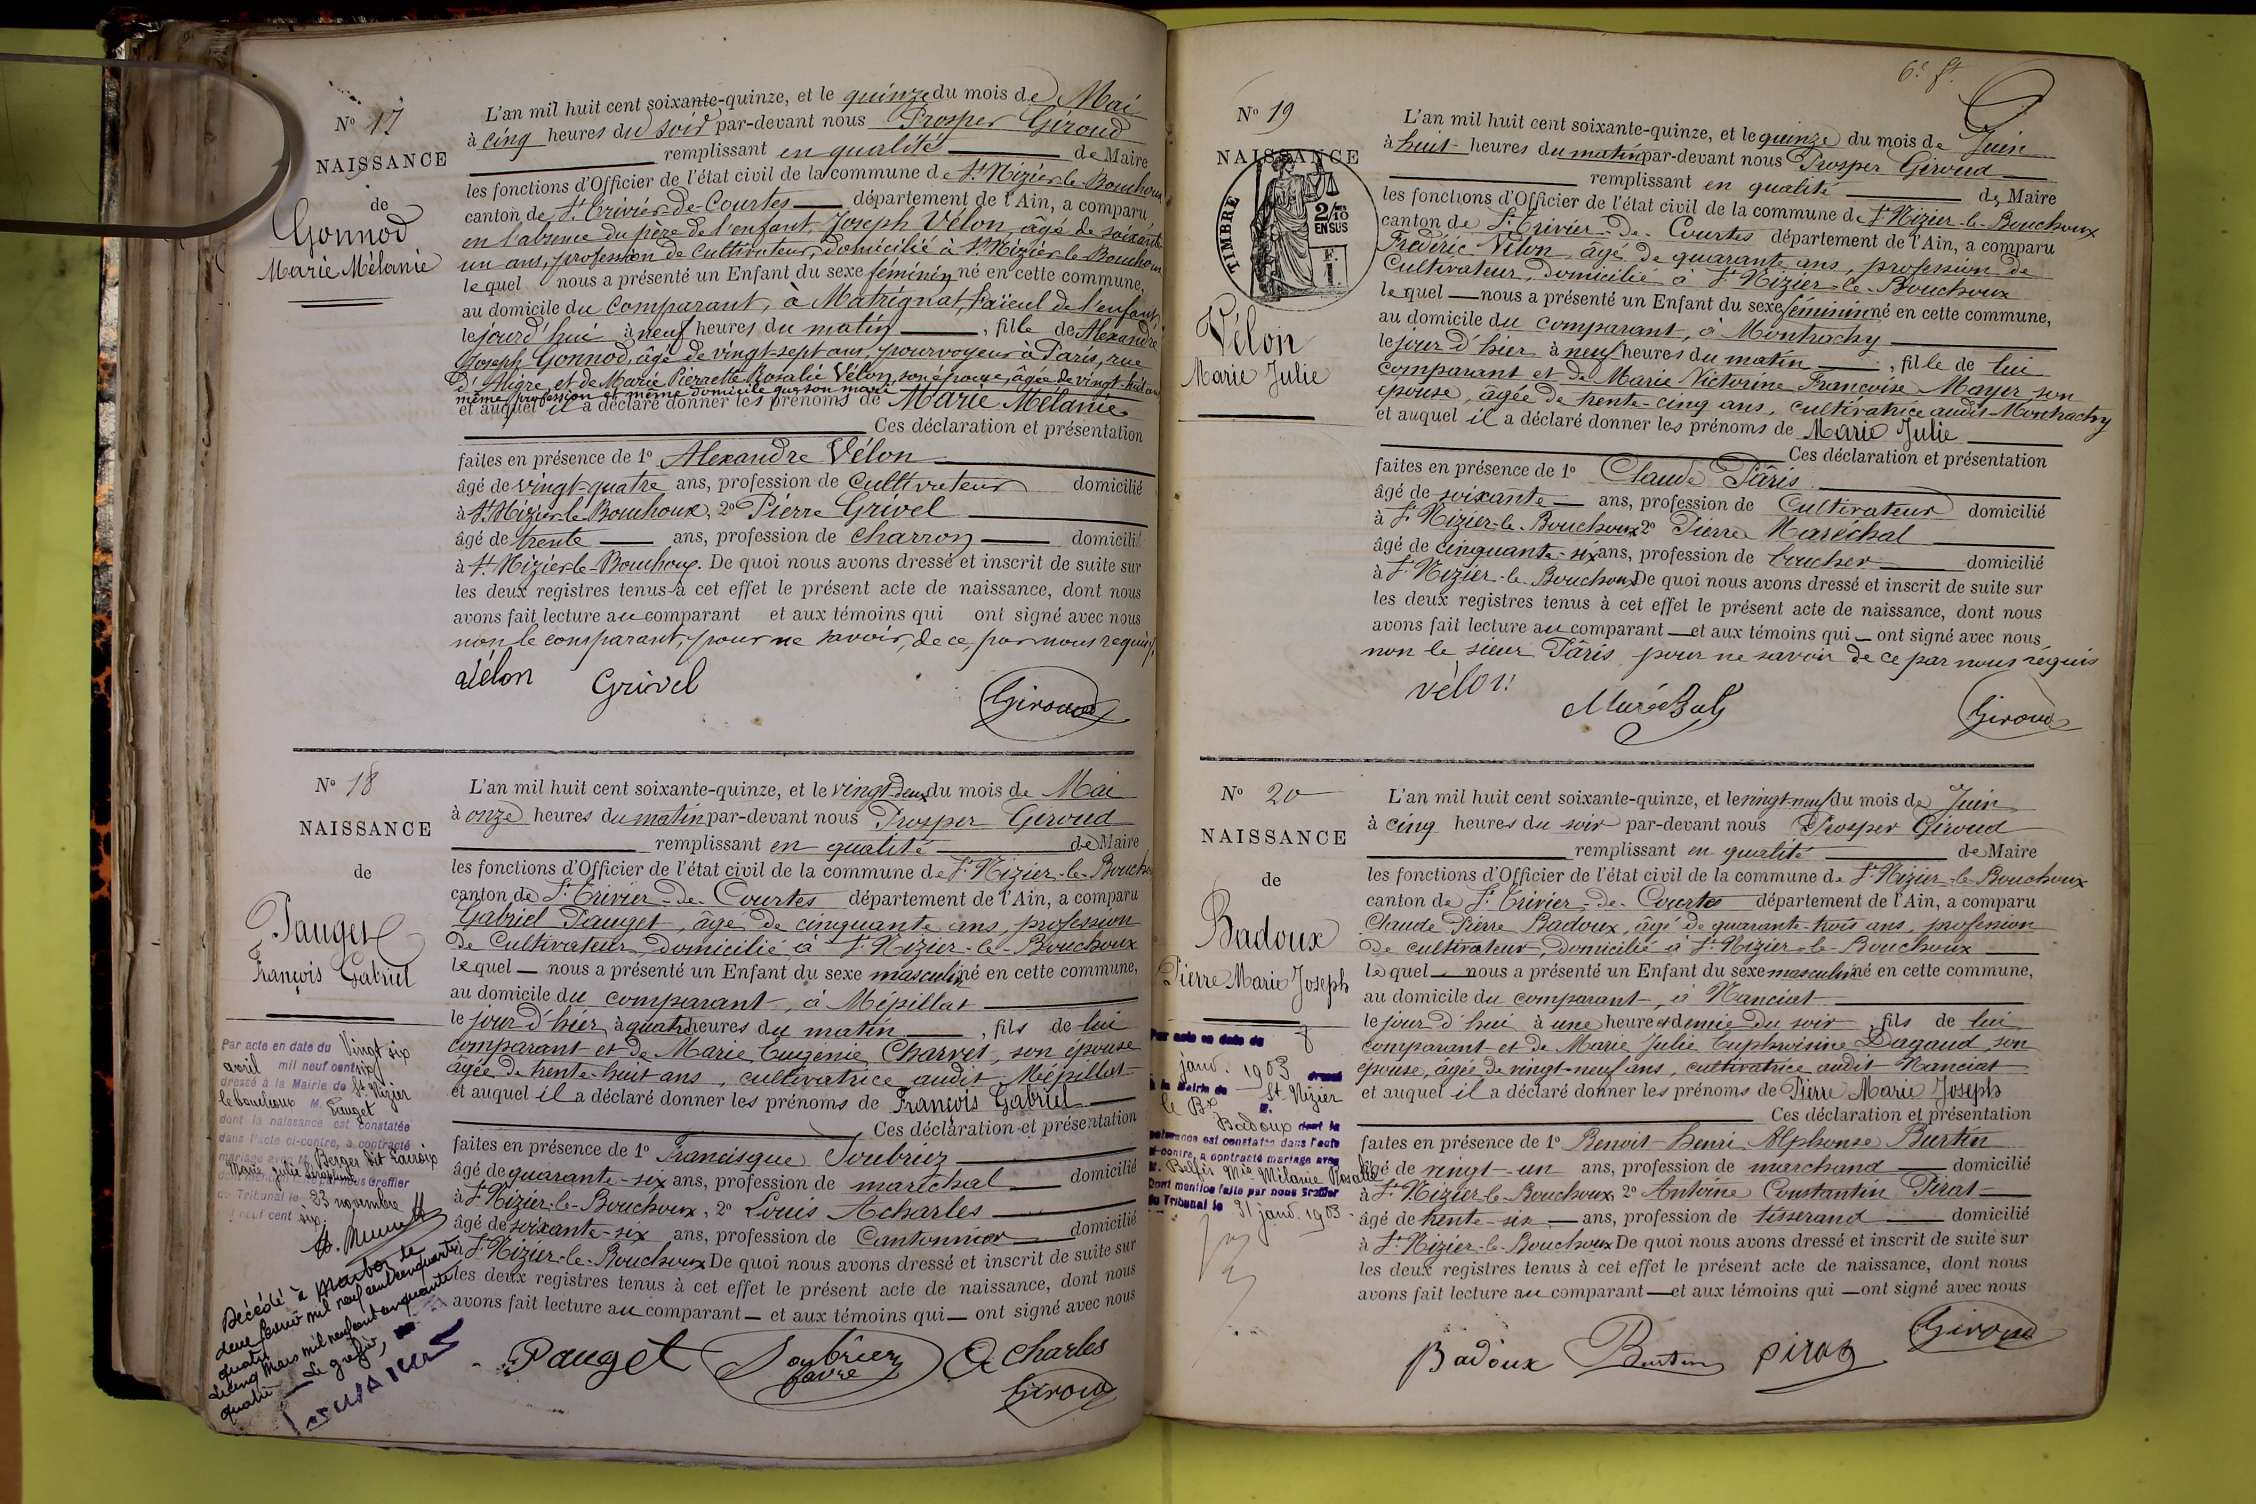 Nº 17
NAISSANCE
de
Gonnod
Marie Mélanie
L'an mil huit cent soixante-quinze, et le quinze du mois de Mai
à cinq heures du soir par-devant nous Prosper Giroud
remplissant en qualité de Maire
les fonctions d'Officier de l'état civil de la commune de St Nizier-le-Bouchoux
canton de St Trivier-de-Courtes département de l'Ain, a comparu
en l'absence du père de l'enfant, Joseph Vélon, âgé de soixante
un ans, profession de cultivateur, domicilié à St Nizier-le-Bouchoux
lequel nous a présenté un Enfant du sexe féminin né en cette commune,
au domicile du comparant, à Matrignat, l'aïeul de l'enfant,
le jourd'hui à neuf heures du matin, fille de Alexandre
Joseph Gonnod, âgé de vingt-sept ans, pourvoyeur à Paris, rue
d'Aligre, et de Marie Pierrette Rosalie Vélon, son épouse, âgée de vingt-huit ans
même profession et même domicile que son mari
et auquel il a déclaré donner les prénoms de Marie Mélanie
Ces déclaration et présentation
faites en présence de 1º Alexandre Vélon
âgé de vingt-quatre ans, profession de cultivateur domicilié
à St Nizier-le-Bouchoux, 2º Pierre Grivel
âgé de trente ans, profession de charron domicilié
à St Nizier-le-Bouchoux. De quoi nous avons dressé et inscrit de suite sur
les deux registres tenus à cet effet le présent acte de naissance, dont nous
avons fait lecture au comparant et aux témoins qui ont signé avec nous
non le comparant, pour ne savoir, de ce, par nous requis.
Vélon Grivel Giroud
Nº 18
NAISSANCE
de
Pauget
François Gabriel
Par acte en date du Vingt six
avril mil neuf cent six
dressé à la Mairie de St Nizier
le bouchoux M. Pauget
dont la naissance est constatée
dans l'acte ci-contre, a contracté
mariage avec M. Berger dit Lacroix
Marie Julie
dont mention faite par nous Greffier
du Tribunal le 23 novembre
neuf cent six
Décédé à Marboz le
deux février mil neuf cent cinquante
quatre
Le cinq Mars mil neuf cent cinquante
quatre Le greffier,
L'an mil huit cent soixante-quinze, et le vingt-deux du mois de Mai
à onze heures du matin par-devant nous Prosper Giroud
remplissant en qualité de Maire
les fonctions d'Officier de l'état civil de la commune de St Nizier-le-Bouchoux
canton de St Trivier-de-Courtes département de l'Ain, a comparu
Gabriel Pauget, âgé de cinquante ans, profession
de Cultivateur, domicilié à St Nizier-le-Bouchoux
lequel nous a présenté un Enfant du sexe masculin né en cette commune,
au domicile du comparant, à Mépillat
le jour d'hier, à quatre heures du matin, fils de lui
comparant et de Marie Eugénie Charvet, son épouse
âgée de trente-huit ans, cultivatrice audit Mépillat
et auquel il a déclaré donner les prénoms de François Gabriel
Ces déclaration et présentation
faites en présence de 1º Francisque Soubruz
âgé de quarante-six ans, profession de maréchal domicilié
à St Nizier-le-Bouchoux, 2º Louis Acharles
âgé de soixante-six ans, profession de Cantonnier domicilié
à St Nizier-le-Bouchoux De quoi nous avons dressé et inscrit de suite sur
les deux registres tenus à cet effet le présent acte de naissance, dont nous
avons fait lecture au comparant et aux témoins qui ont signé avec nous
Pauget favre Acharles
Giroud
6e ft
Nº 19
NAISSANCE
TIMBRE
2/10
EN SUS
F.
1.
Vélon
Marie Julie
L'an mil huit cent soixante-quinze, et le quinze du mois de Juin
à huit heures du matin par-devant nous Prosper Giroud
remplissant en qualité de Maire
les fonctions d'Officier de l'état civil de la commune de St Nizier-le-Bouchoux
canton de St Trivier-de-Courtes département de l'Ain, a comparu
Frédéric Vélon, âgé de quarante ans, profession de
Cultivateur, domicilié à St Nizier-le-Bouchoux
lequel nous a présenté un Enfant du sexe féminin né en cette commune,
au domicile du comparant, à Montrachy
le jour d'hier à neuf heures du matin, fille de lui
comparant et de Marie Victorine Françoise Mayer son
épouse, âgée de trente-cinq ans, cultivatrice audit Montrachy
et auquel il a déclaré donner les prénoms de Marie Julie
Ces déclaration et présentation
faites en présence de 1º Claude Pâris
âgé de soixante ans, profession de Cultivateur domicilié
à St Nizier-le-Bouchoux 2º Pierre Maréchal
âgé de cinquante-six ans, profession de boucher domicilié
à St Nizier-le-Bouchoux De quoi nous avons dressé et inscrit de suite sur
les deux registres tenus à cet effet le présent acte de naissance, dont nous
avons fait lecture au comparant et aux témoins qui ont signé avec nous
non le sieur Pâris pour ne savoir de ce par nous requis
vélon Maréchal Giroud
Nº 20
NAISSANCE
de
Badoux
Pierre Marie Joseph
Par acte en date du 8
janv. 1903 dressé
à la Mairie de St Nizier
le Bx M.
Badoux dont la
naissance est constatée dans l'acte
ci-contre, a contracté mariage avec
M. Mie Mélanie Rosalie
Dont mention faite par nous Greffier
du Tribunal le 31 janv. 1903.
L'an mil huit cent soixante-quinze, et le vingt-neuf du mois de Juin
à cinq heures du soir par-devant nous Prosper Giroud
remplissant en qualité de Maire
les fonctions d'Officier de l'état civil de la commune de St Nizier-le-Bouchoux
canton de St Trivier-de-Courtes département de l'Ain, a comparu
Claude Pierre Badoux, âgé de quarante-trois ans, profession
de cultivateur, domicilié à St Nizier-le-Bouchoux
lequel nous a présenté un Enfant du sexe masculin né en cette commune,
au domicile du comparant, à Nanciat
le jour d'hui à une heure et demie du soir, fils de lui
comparant et de Marie Julie Euphroisine Dagaud, son
épouse, âgée de vingt-neuf ans, cultivatrice audit Nanciat
et auquel il a déclaré donner les prénoms de Pierre Marie Joseph
Ces déclaration et présentation
faites en présence de 1º Benoit henri Alphonse Burtin
âgé de vingt-un ans, profession de marchand domicilié
à St Nizier-le-Bouchoux, 2º Antoine Constantin Pirat
âgé de trente-six ans, profession de tisserand domicilié
à St Nizier-le-Bouchoux De quoi nous avons dressé et inscrit de suite sur
les deux registres tenus à cet effet le présent acte de naissance, dont nous
avons fait lecture au comparant et aux témoins qui ont signé avec nous
Badoux Burtin Pirat Giroud